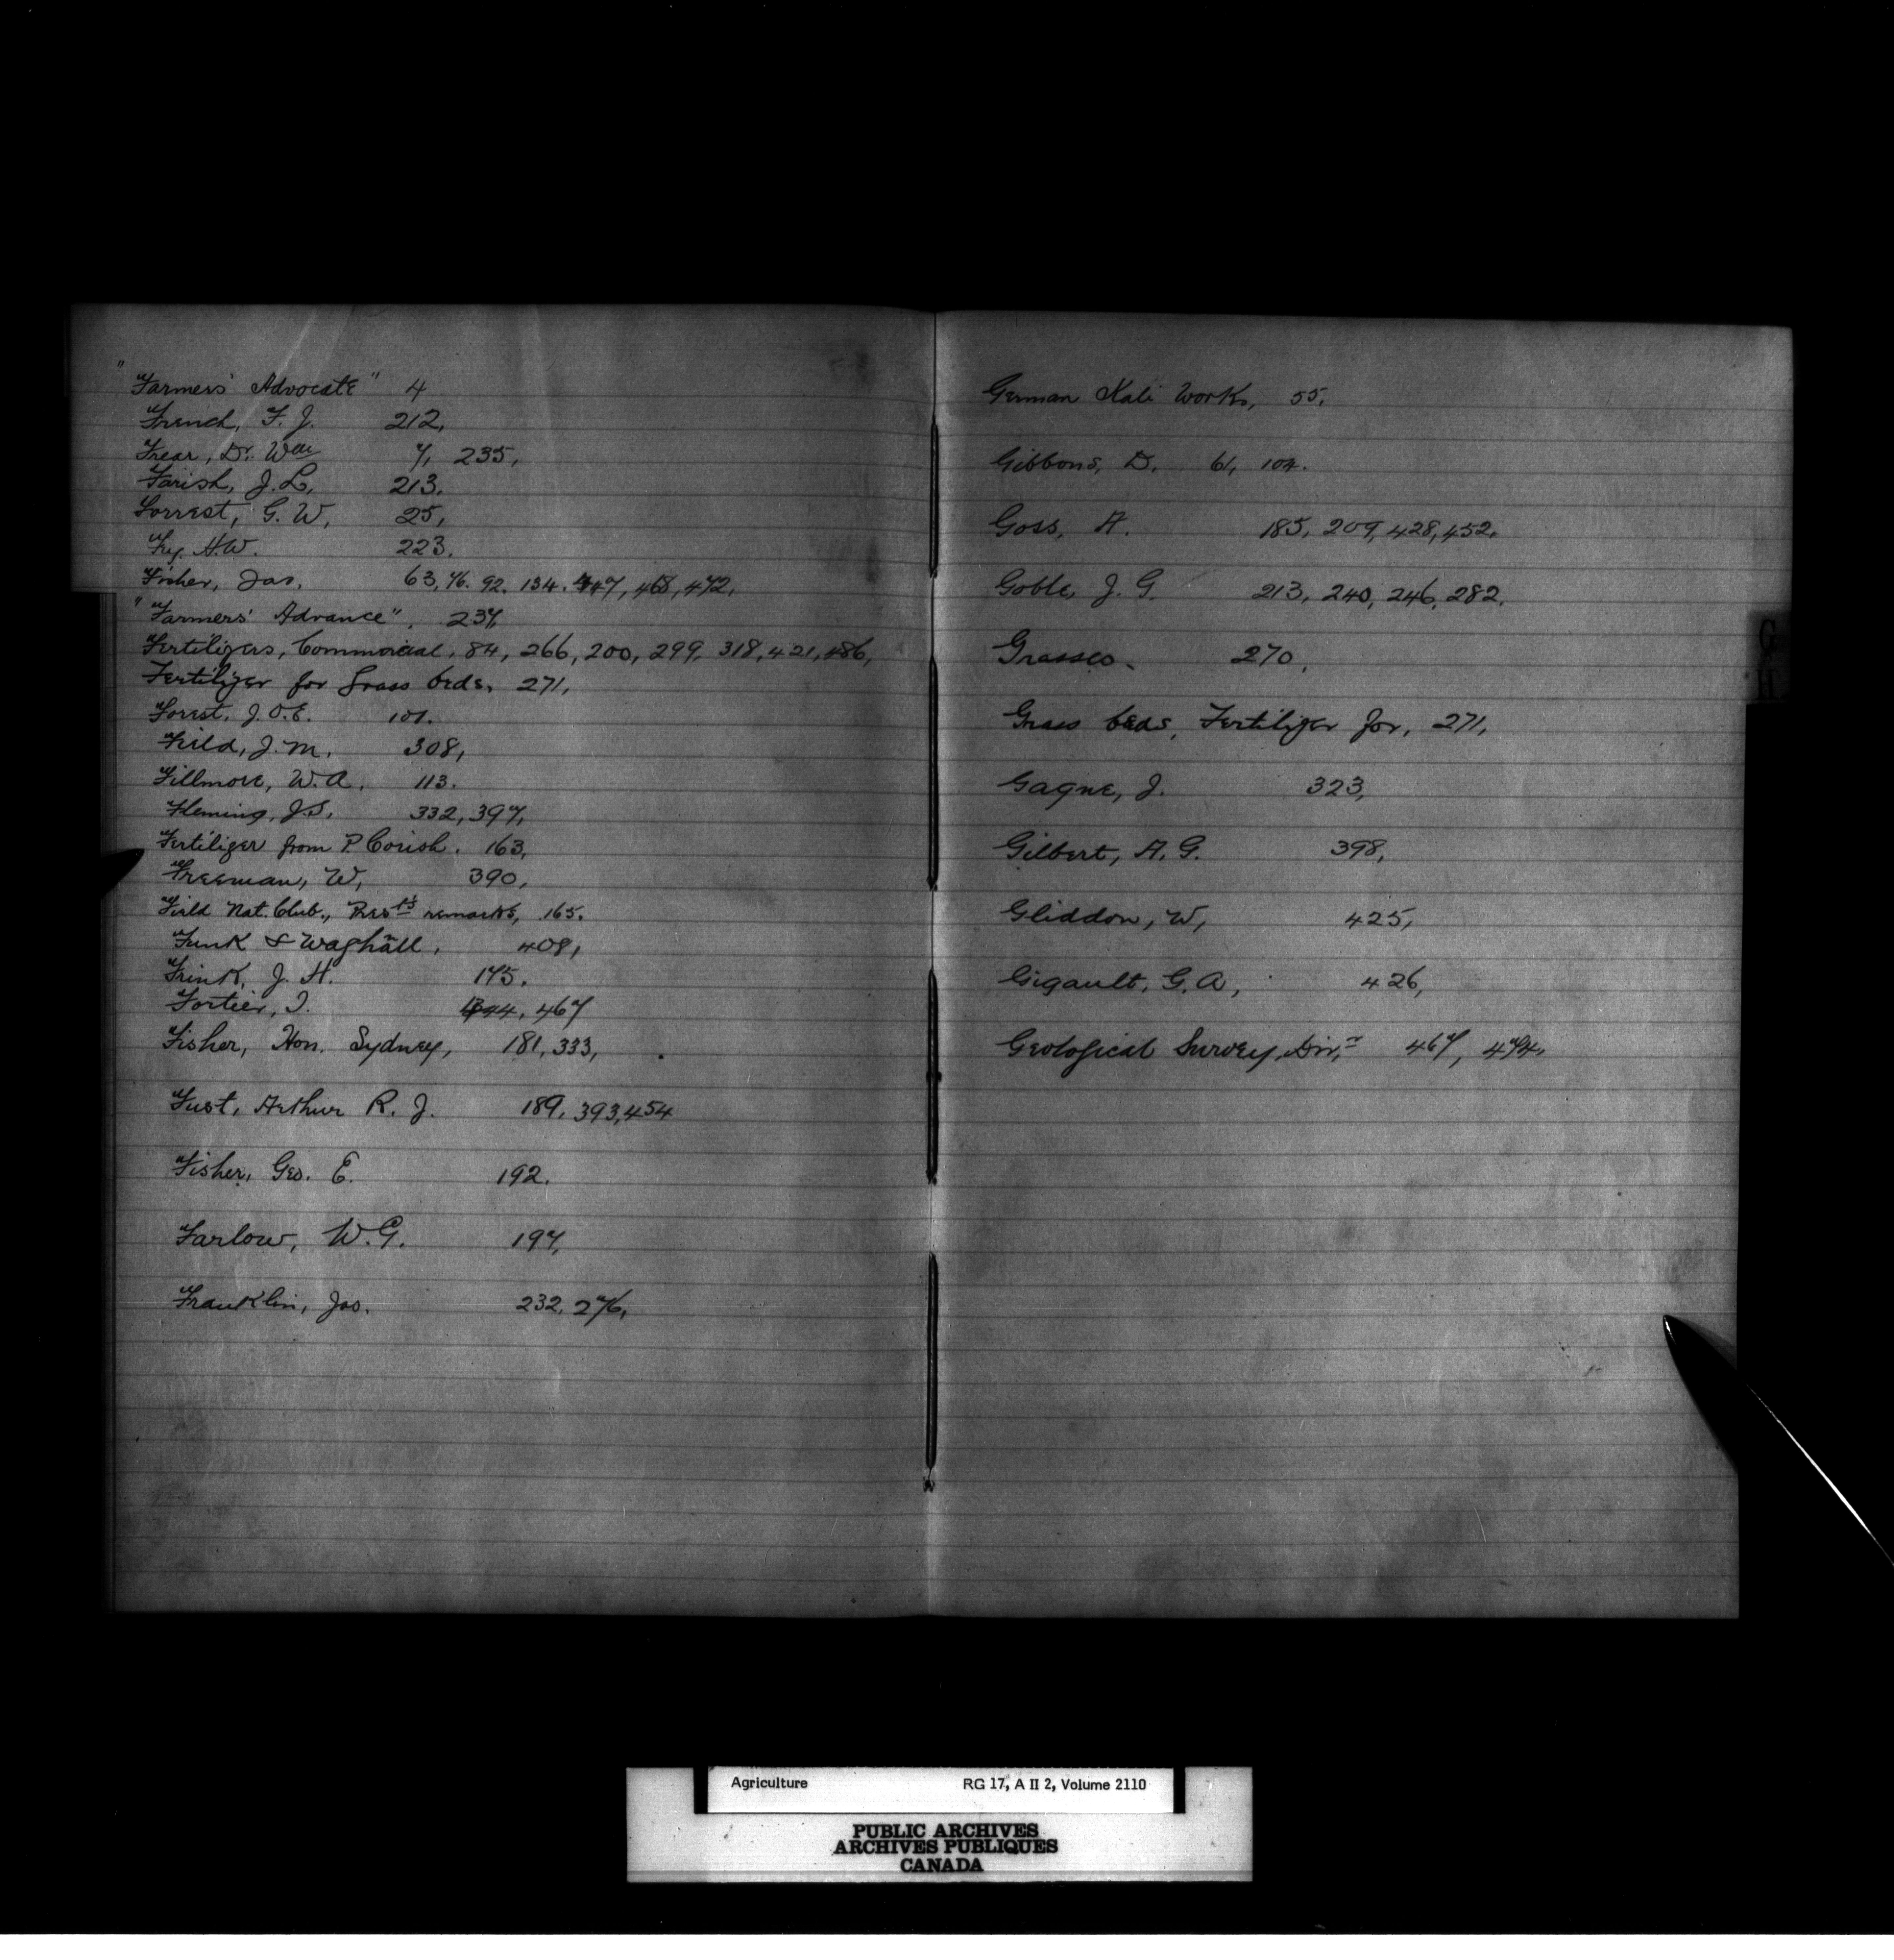 "Farmers' Advocate" 4
French, F. J. 212,
Frear, Dr. Wm 7, 235,
Farish, J. L. 213.
Forrest, G. W. 25,
Fry. H.W. 223.
Fisher, Jas. 63, 76. 92. 134. 447, 468, 472,
"Farmers' Advance". 237,
Fertilizers, Commercial. 84, 266, 200, 299, 318, 421, 486,
Fertilizer for Grass beds, 271,
Forest, J.O.E. 101.
Field, J. M. 308,
Fillmore, W. A. 113.
Fleming, J.S. 332, 397,
Fertilizer from P. Corish. 163,
Freeman, W, 390,
Field Nat. Club., Pres ts remarks, 165.
Funk & Wagnall, 408,
Frink, J. H. 175.
Fortier, J. 467
Fisher, Hon. Sydney, 181, 333,
Fust, Arthur R. J. 189, 393, 454
Fisher, Geo. E. 192.
Farlow, W.G. 197,
Franklin, Jos. 232, 276,
German Kali Works, 55.
Gibbons, D. 61, 104.
Goss, A. 185, 209, 428, 452.
Goble, J. G. 213, 240, 246, 282.
Grasses. 270,
Grass beds, Fertilizer for, 271,
Gagne, J. 323,
Gilbert, A. G. 398,
Gliddon, W, 425,
Gigault, G. A, 426,
Geological Survey, Dir. 467, 474,
G
H
Agriculture RG 17, A II 2, Volume 2110
PUBLIC ARCHIVES
ARCHIVES PUBLIQUES
CANADA